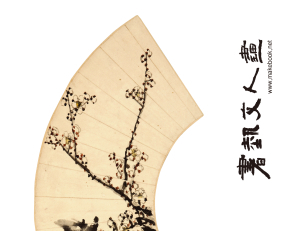 書藝文人畫
www.makebook.net